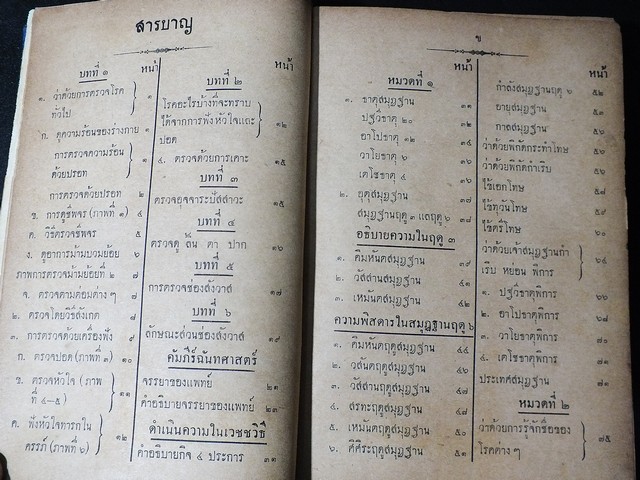 สารบาญ
บทที่ ๑ หน้า
๑. ว่าด้วยการตรวจโรค
ทั่วไป ๑
ก. ดูความร้อนของร่างกาย ๑
การตรวจความร้อน
ด้วยปรอท ๑
การตรวจด้วยปรอท ๒
ข. การดูชีพจร (ภาพที่ ๑) ๔
ค. วิธีตรวจชีพจร ๕
ง. ดูอาการม้ามบวมย้อย ๖
ภาพการตรวจม้ามย้อยที่ ๒ ๗
จ. ตรวจตามต่อมต่าง ๆ ๗
๒. ตรวจโดยวิธีสังเกต ๘
๓. การตรวจด้วยเครื่องฟัง ๙
ก. ตรวจปอด (ภาพที่ ๓) ๑๐
ข. ตรวจหัวใจ (ภาพ
ที่ ๔-๕) ๑๑
ค. ฟังหัวใจทารกใน
ครรภ์ (ภาพที่ ๖) ๑๒
บทที่ ๒ หน้า
โรคอะไรบ้างที่จะทราบ
ได้จากการฟังหัวใจและ
ปอด ๑๒
๔. ตรวจด้วยการเคาะ ๑๕
บทที่ ๓
ตรวจอุจจาระปัสสาวะ ๑๕
บทที่ ๔
ตรวจดู ลิ้น ตา ปาก ๑๖
บทที่ ๕
การตรวจช่องสังวาส ๑๗
บทที่ ๖
ลักษณะส่วนช่องสังวาส ๑๙
คัมภีร์ฉันทศาสตร์
จรรยาของแพทย์ ๒๑
คำอธิบายจรรยาของแพทย์ ๒๓
ดำเนินความในเวชชวิธี
คำอธิบายกิจ ๔ ประการ ๓๑
ข
หมวดที่ ๑ หน้า
๑. ธาตุสมุฏฐาน ๓๑
ปถวีธาตุ ๒๐ ๓๓
อาโปธาตุ ๑๒
วาโยธาตุ ๖ ๓๖
เตโชธาตุ ๔ ๓๖
๒. อุตุสมุฏฐาน ๓๗
สมุฏฐานฤดู ๓ และฤดู ๖ ๓๘
อธิบายความในฤดู ๓
๑. คิมหันตสมุฏฐาน ๓๙
๒. วัสสานสมุฏฐาน ๔๑
๓. เหมันตสมุฏฐาน ๔๒
ความพิสดารในสมุฏฐานฤดู ๖
๑. คิมหันตฤดูสมุฏฐาน ๔๔
๒. วสันตฤดูสมุฏฐาน ๔๖
๓. วัสสานฤดูสมุฏฐาน ๔๗
๔. สรทะฤดูสมุฏฐาน ๔๘
๕. เหมันตฤดูสมุฏฐาน ๕๐
๖. ศิศิระฤดูสมุฏฐาน ๕๑
หน้า
กำลังสมุฏฐานฤดู ๖ ๕๒
อายุสมุฏฐาน ๕๓
กาลสมุฏฐาน ๕๖
ว่าด้วยพิกัดกระทำโทษ ๕๖
ว่าด้วยพิกัดกำเริบ
ไข้เอกโทษ ๕๗
ไข้ทุวันโทษ ๕๙
ไข้ตรีโทษ ๖๐
ว่าด้วยเจ้าสมุฏฐานกำ
เริบ หย่อน พิการ ๖๔
๑. ปถวีธาตุพิการ ๖๖
๒. อาโปธาตุพิการ ๖๘
๓. วาโยธาตุพิการ ๗๐
๔. เตโชธาตุพิการ ๗๑
ประเทศสมุฏฐาน ๗๑
หมวดที่ ๒
ว่าด้วยการรู้จักชื่อของ
โรคต่าง ๆ ๗๕